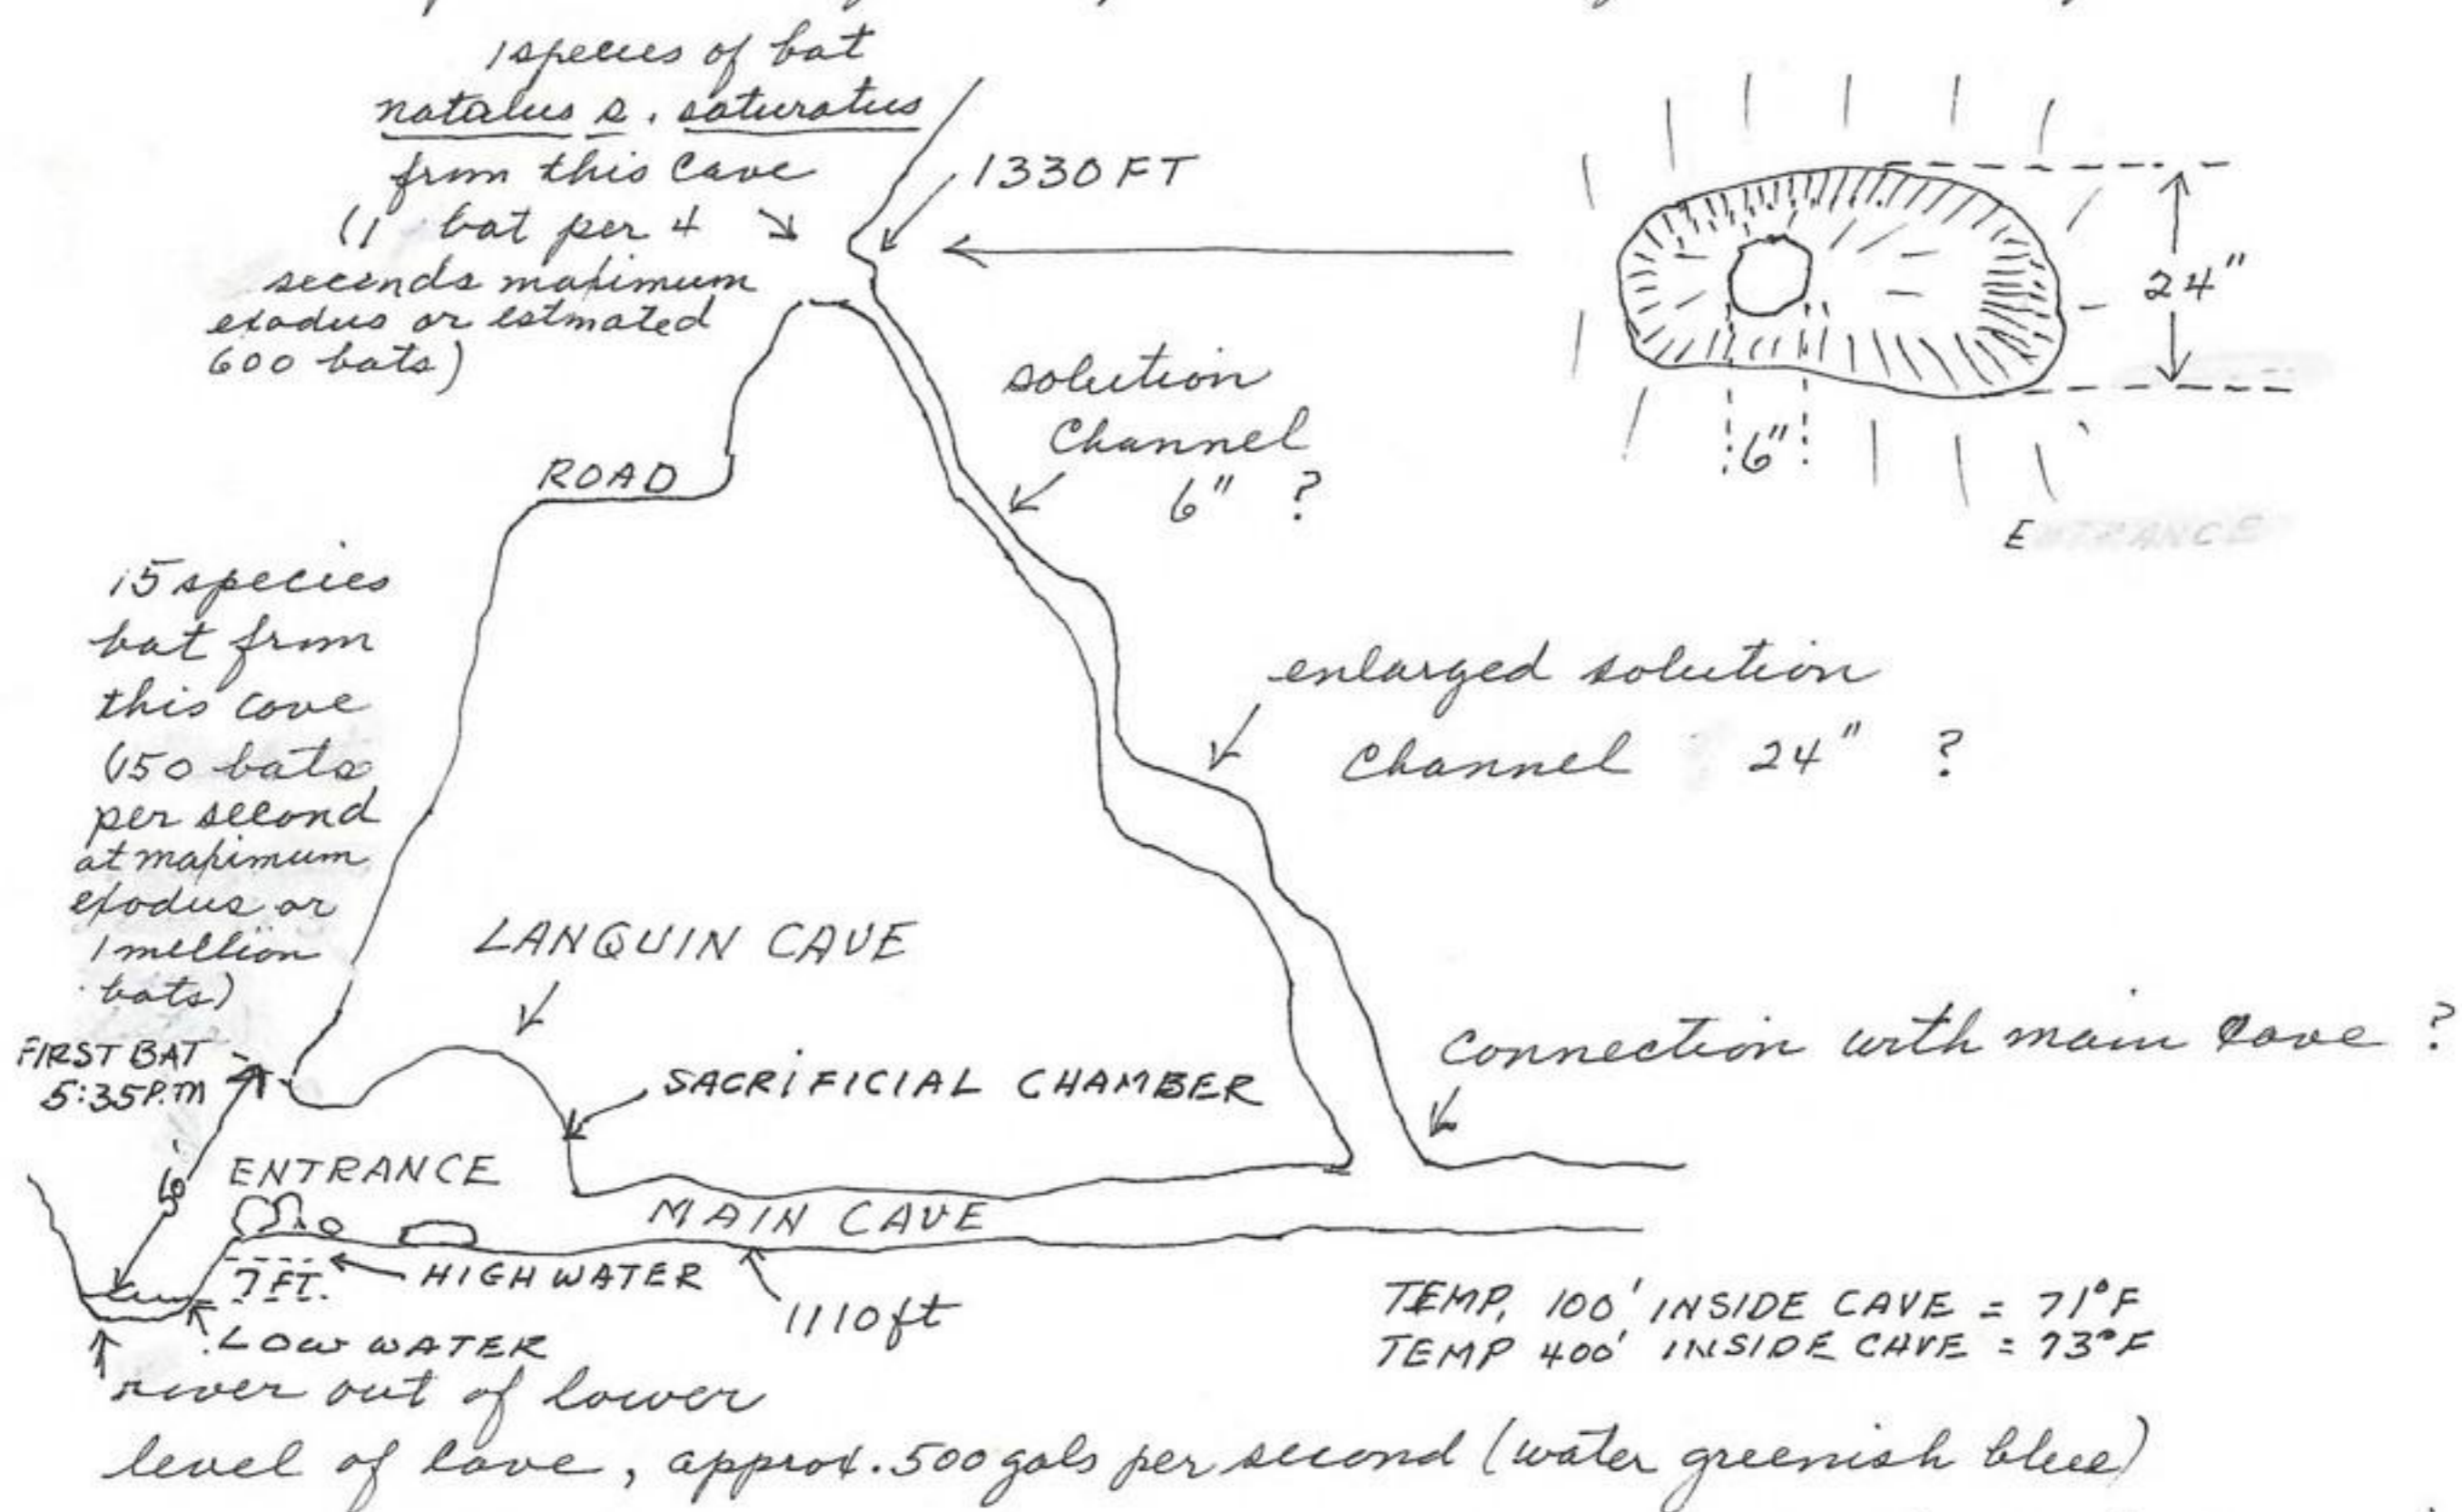 1 species of bat
natalus s. saturatus
from this cave
(1 bat per 4
seconds maximum
exodus or estmated
600 bats)
1330 FT
24"
6"
ENTRANCE
solution
channel
6" ?
ROAD
15 species
bat from
this cave
(150 bats
per second
at maximum
exodus or
1 million
bats)
enlarged solution
channel 24" ?
LANQUIN CAVE
FIRST BAT
5:35 P.M
SACRIFICIAL CHAMBER
connection with main cave ?
ENTRANCE
MAIN CAVE
7 FT.
HIGH WATER
1110 ft
LOW WATER
TEMP, 100' INSIDE CAVE = 71°F
TEMP 400' INSIDE CAVE = 73°F
river out of lower
level of cave, approx. 500 gals per second (water greenish blue)